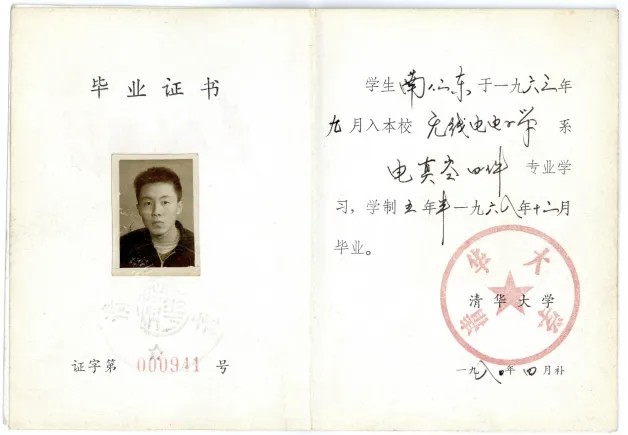 毕业证书
证字第 000941 号
学生 南仁东 于一九六三年
九月入本校 无线电电子学 系
电真空器件 专业学
习，学制五年半一九六八年十二月
毕业。
清华大学
清华大学
一九八〇年四月补